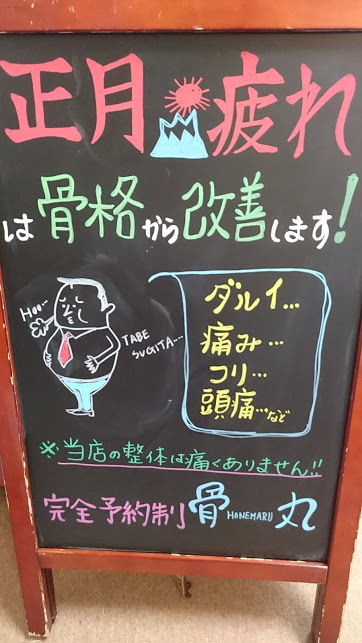 正月疲れ
は骨格から改善します!
Hoo...
TABE
SUGITA...
ダルイ...
痛み...
コリ...
頭痛...など
※当店の整体は痛くありません!!
完全予約制 骨 HONEMARU 丸